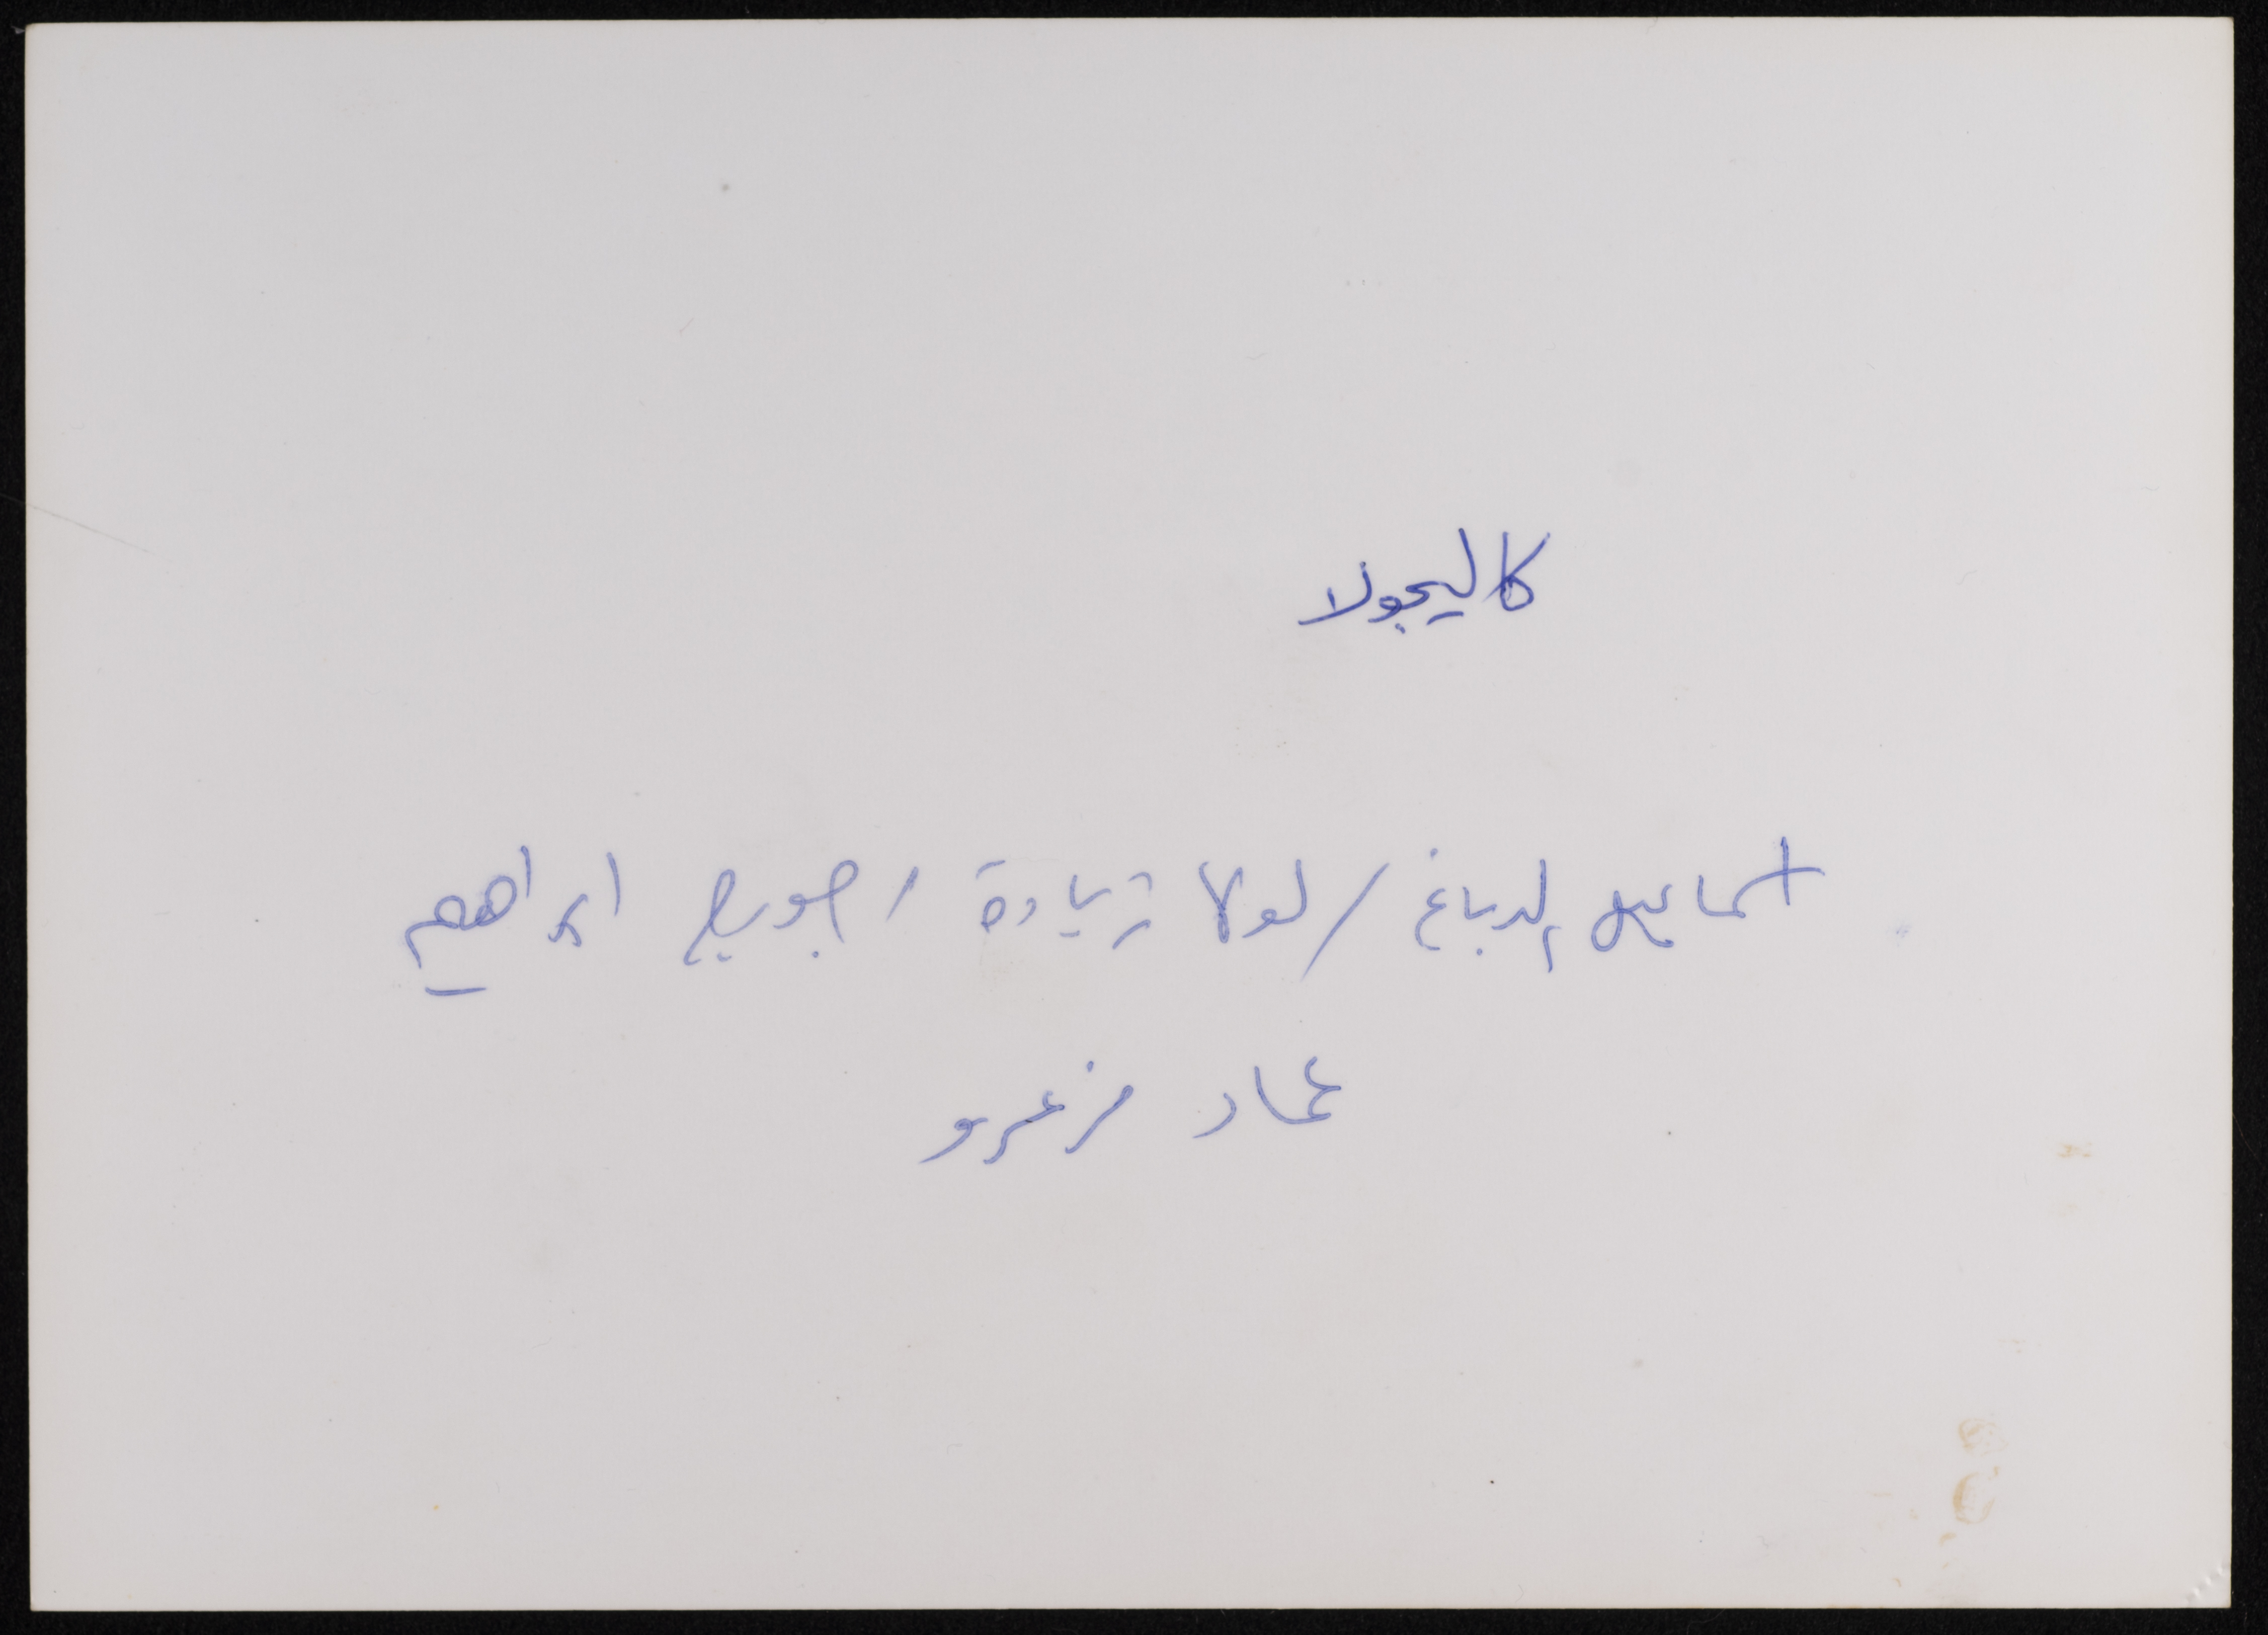 كاليجولا
اسماعيل الدباغ / لولا زيادة / جبريل ابراهيم
عماد مزعرو